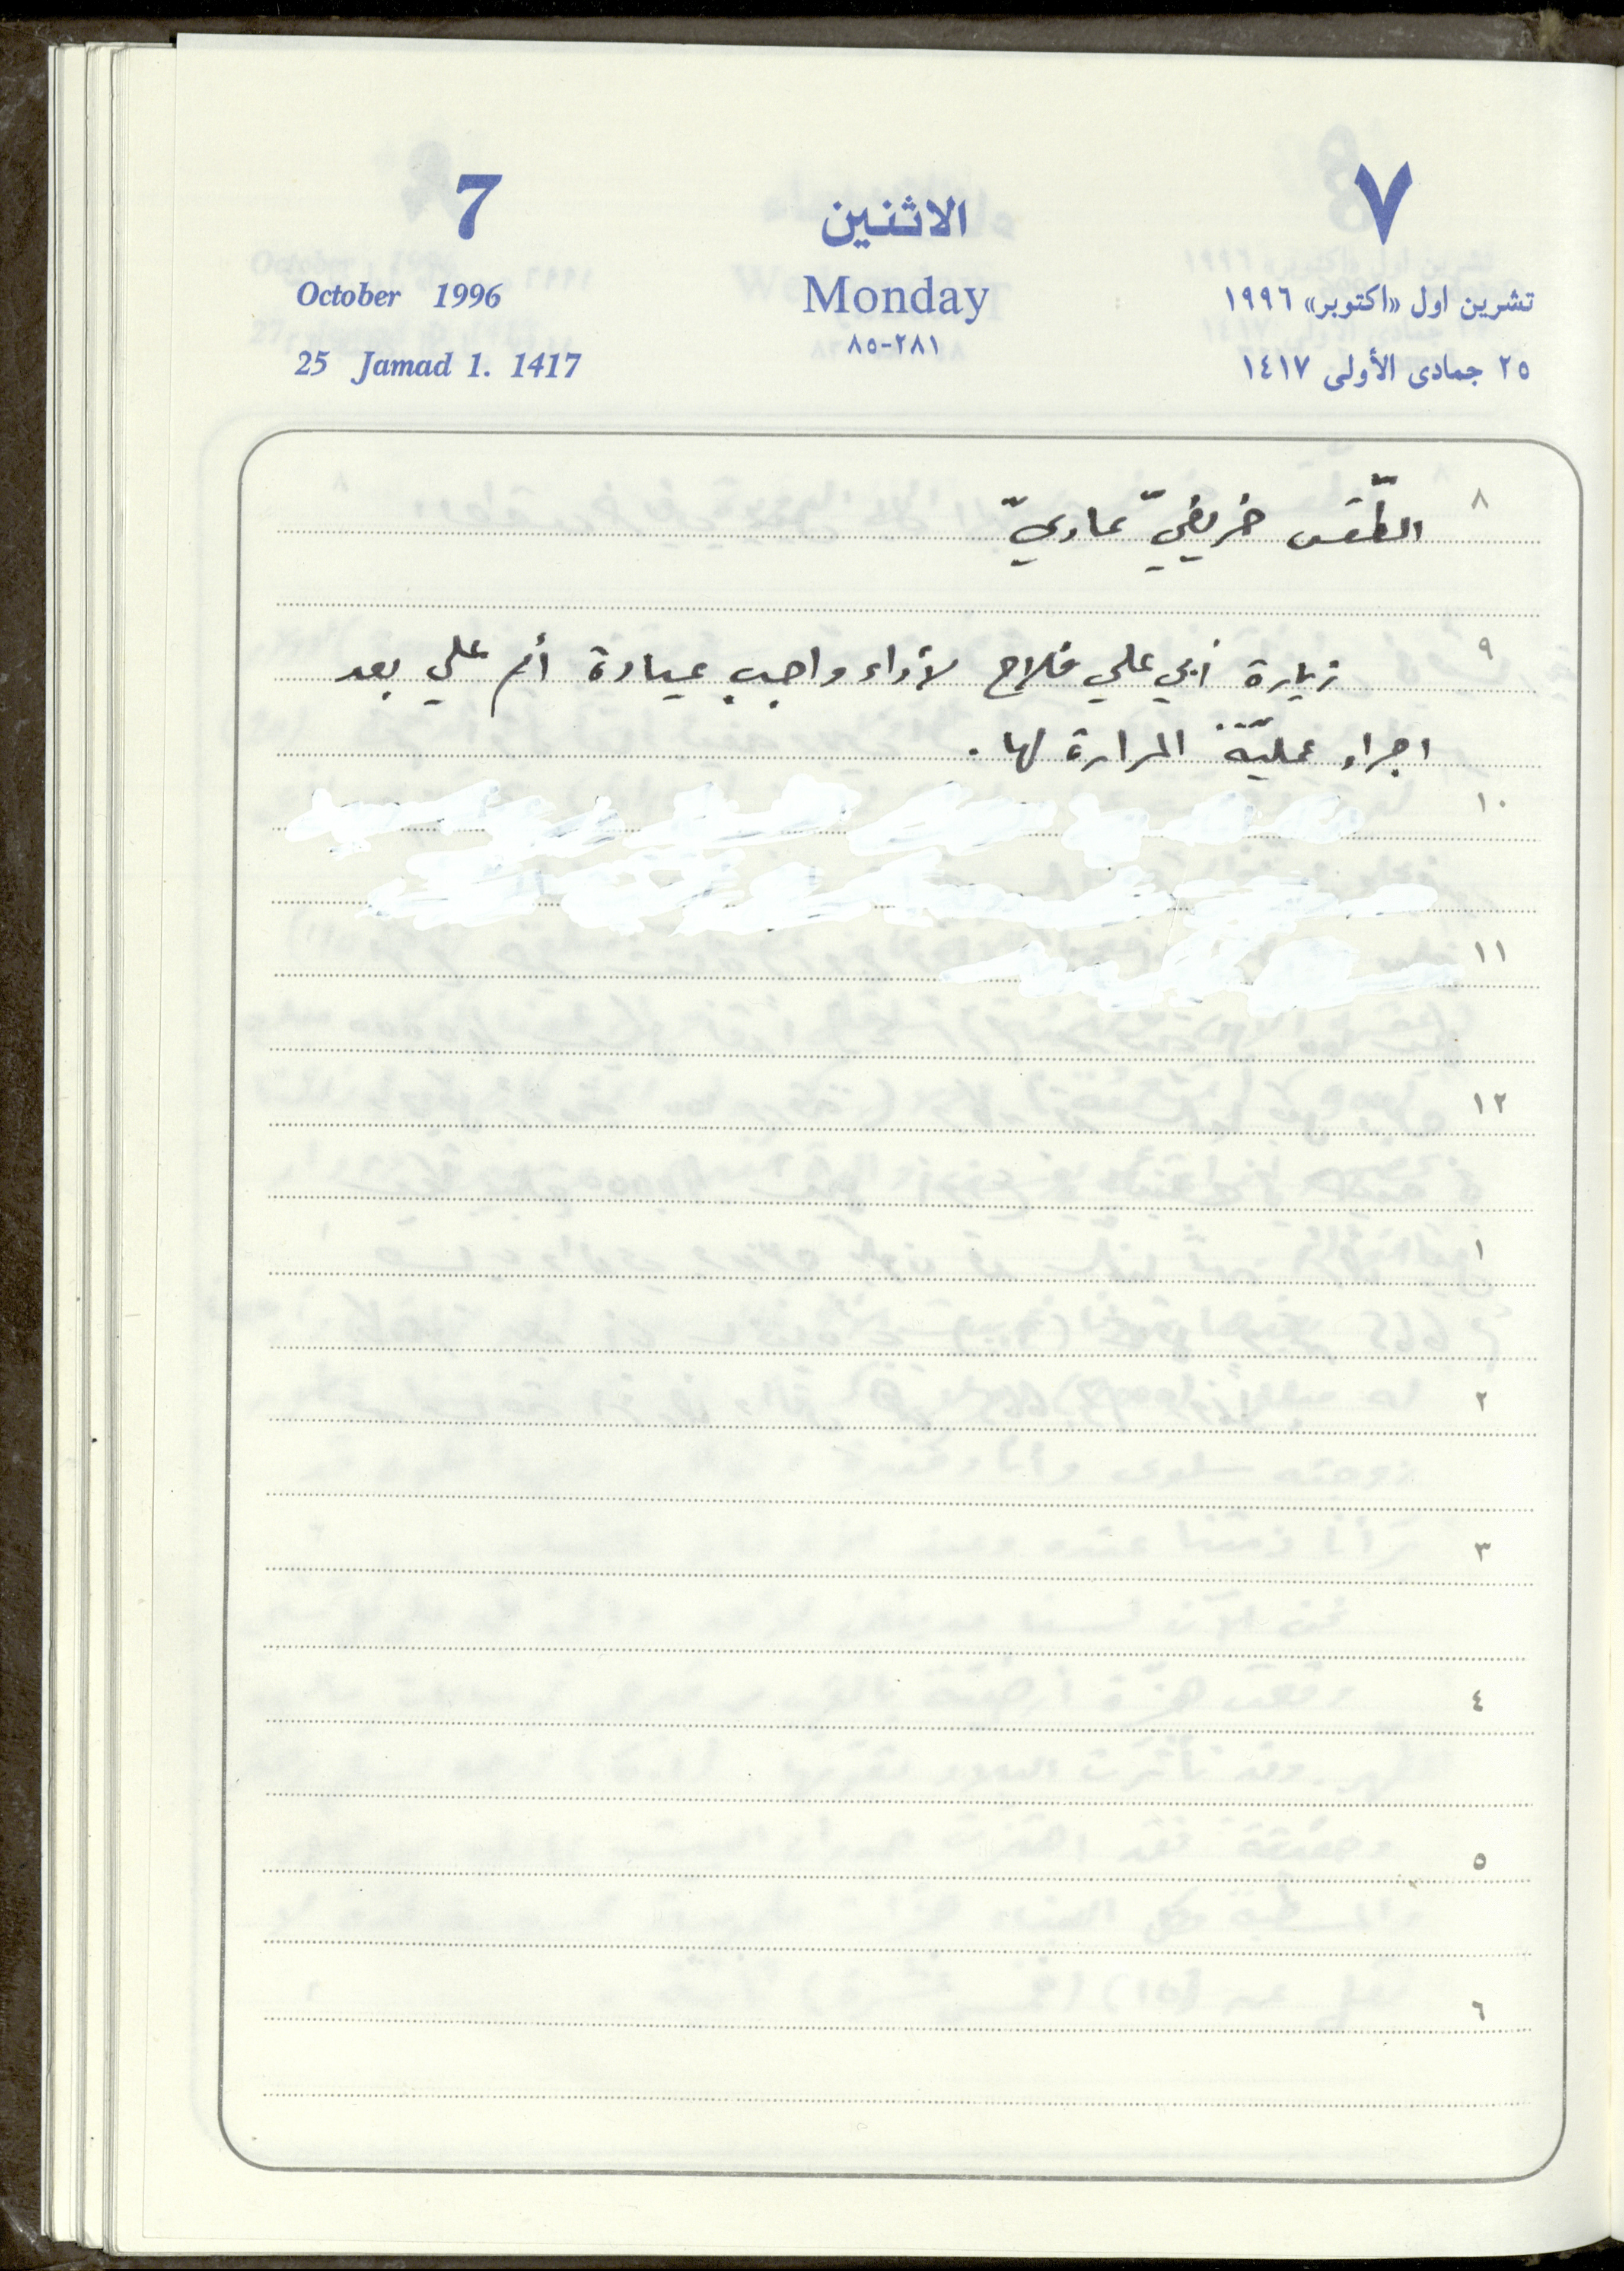 7 الاثنين ٧
October 1996 Monday تشرين اول «اكتوبر» ١٩٩٦
٨٥-٢٨١
25 Jamad 1. 1417 ٢٥ جمادى الأولى ١٤١٧
٨ الطّقس خريفيّ عاديّ
٩ زيارة أبي علي فلاح لأداء واجب عيادة أم علي بعد
اجراء عمليّة المرارة لها.
١٠
١١
١٢
١
٢
٣
٤
٥
٦